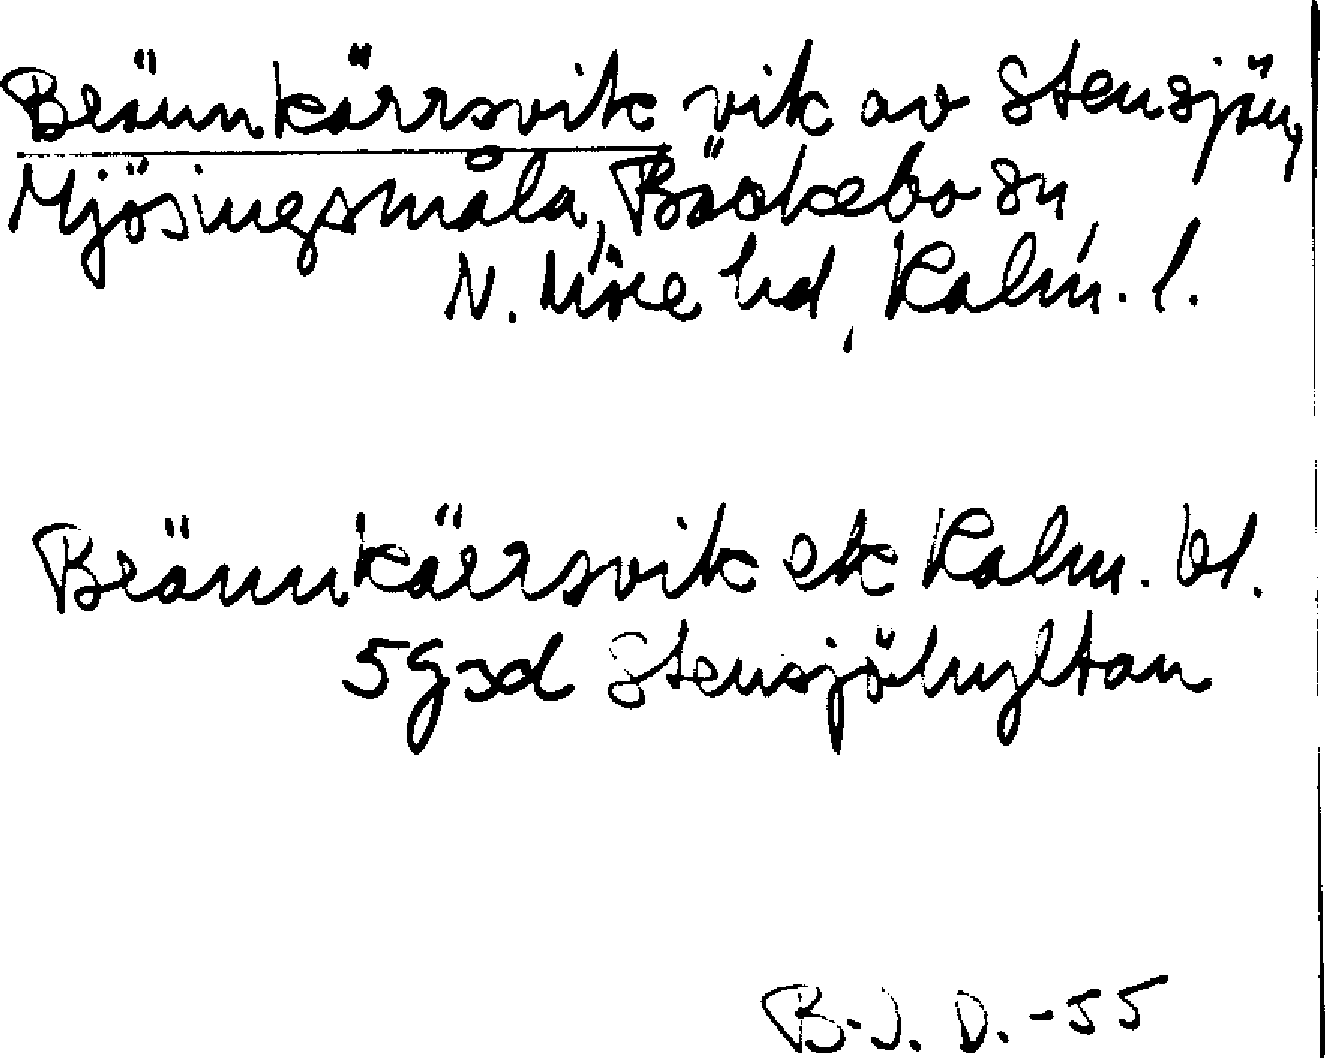 Brännkärrsvik vik av Stensjön,
Mjösingsmåla, Bäckebo sn,
N. Möre hd, Kalm. l.
Brännkärrsvik ek Kalm. bl.
5gsd Stensjöhyltan
B.J. D. -55